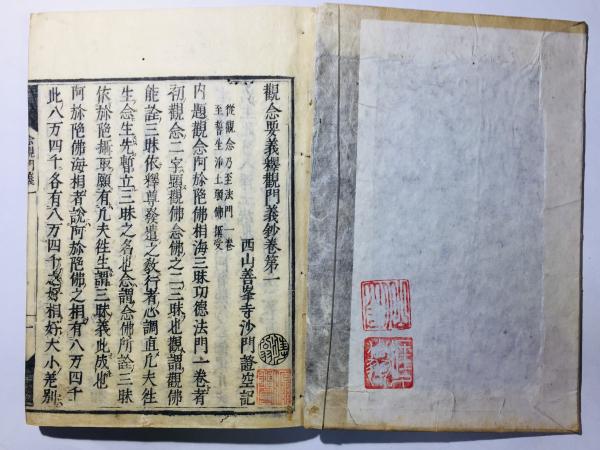 觀念要義釋觀門義鈔卷第一
西山善峯寺沙門證空記
從觀念乃至法門一卷
至誓生淨土願佛攝受
内題觀念阿弥陀佛相海三昧功德法門一卷者
初觀念二字顯觀佛念佛之二三昧也觀謂觀佛
能詮三昧依釋尊發遣之教行者心調直凡夫往
生念生先暫立三昧之名也念謂念佛所詮三昧
依弥陀攝取願有凡夫往生謂三昧義此成也
阿弥陀佛海相者說阿弥陀佛之相有八万四千
此八万四千各有八万四千之好相好大小差別